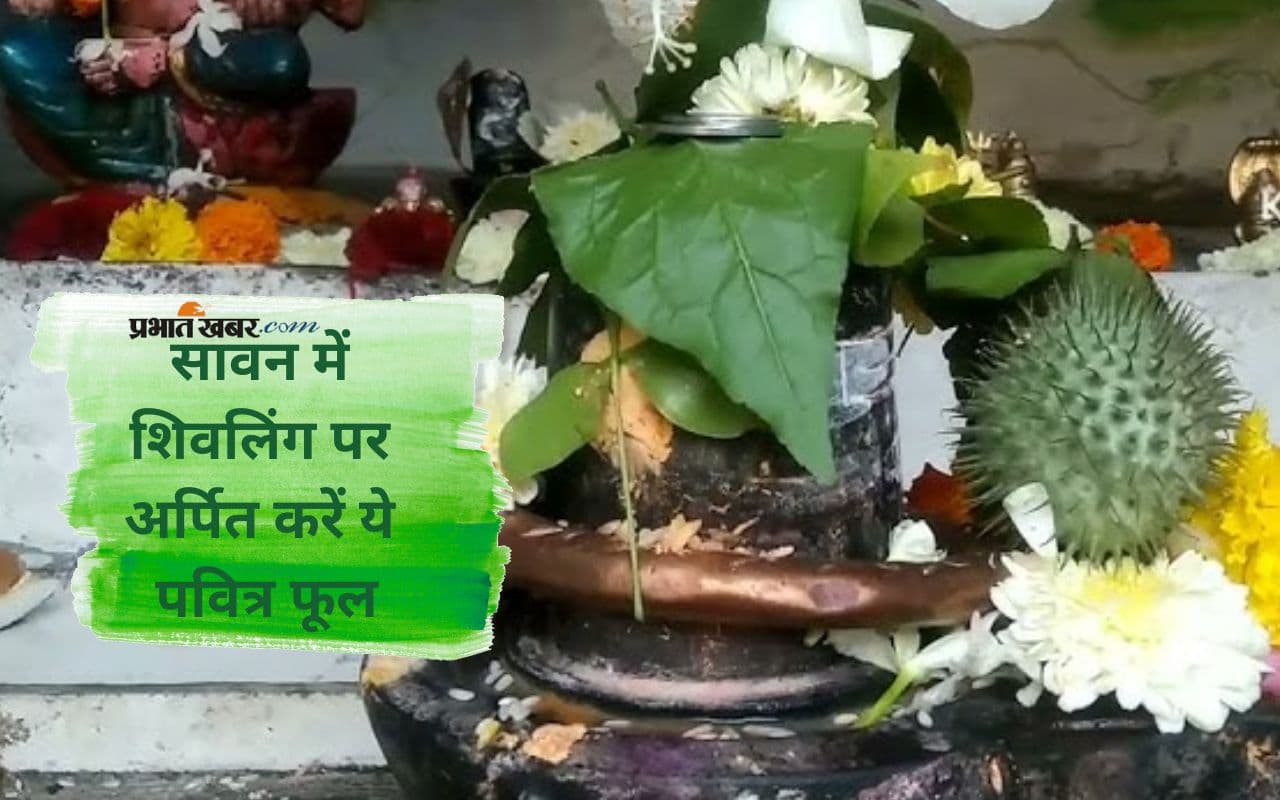 प्रभात खबर.com
सावन में
शिवलिंग पर
अर्पित करें ये
पवित्र फूल